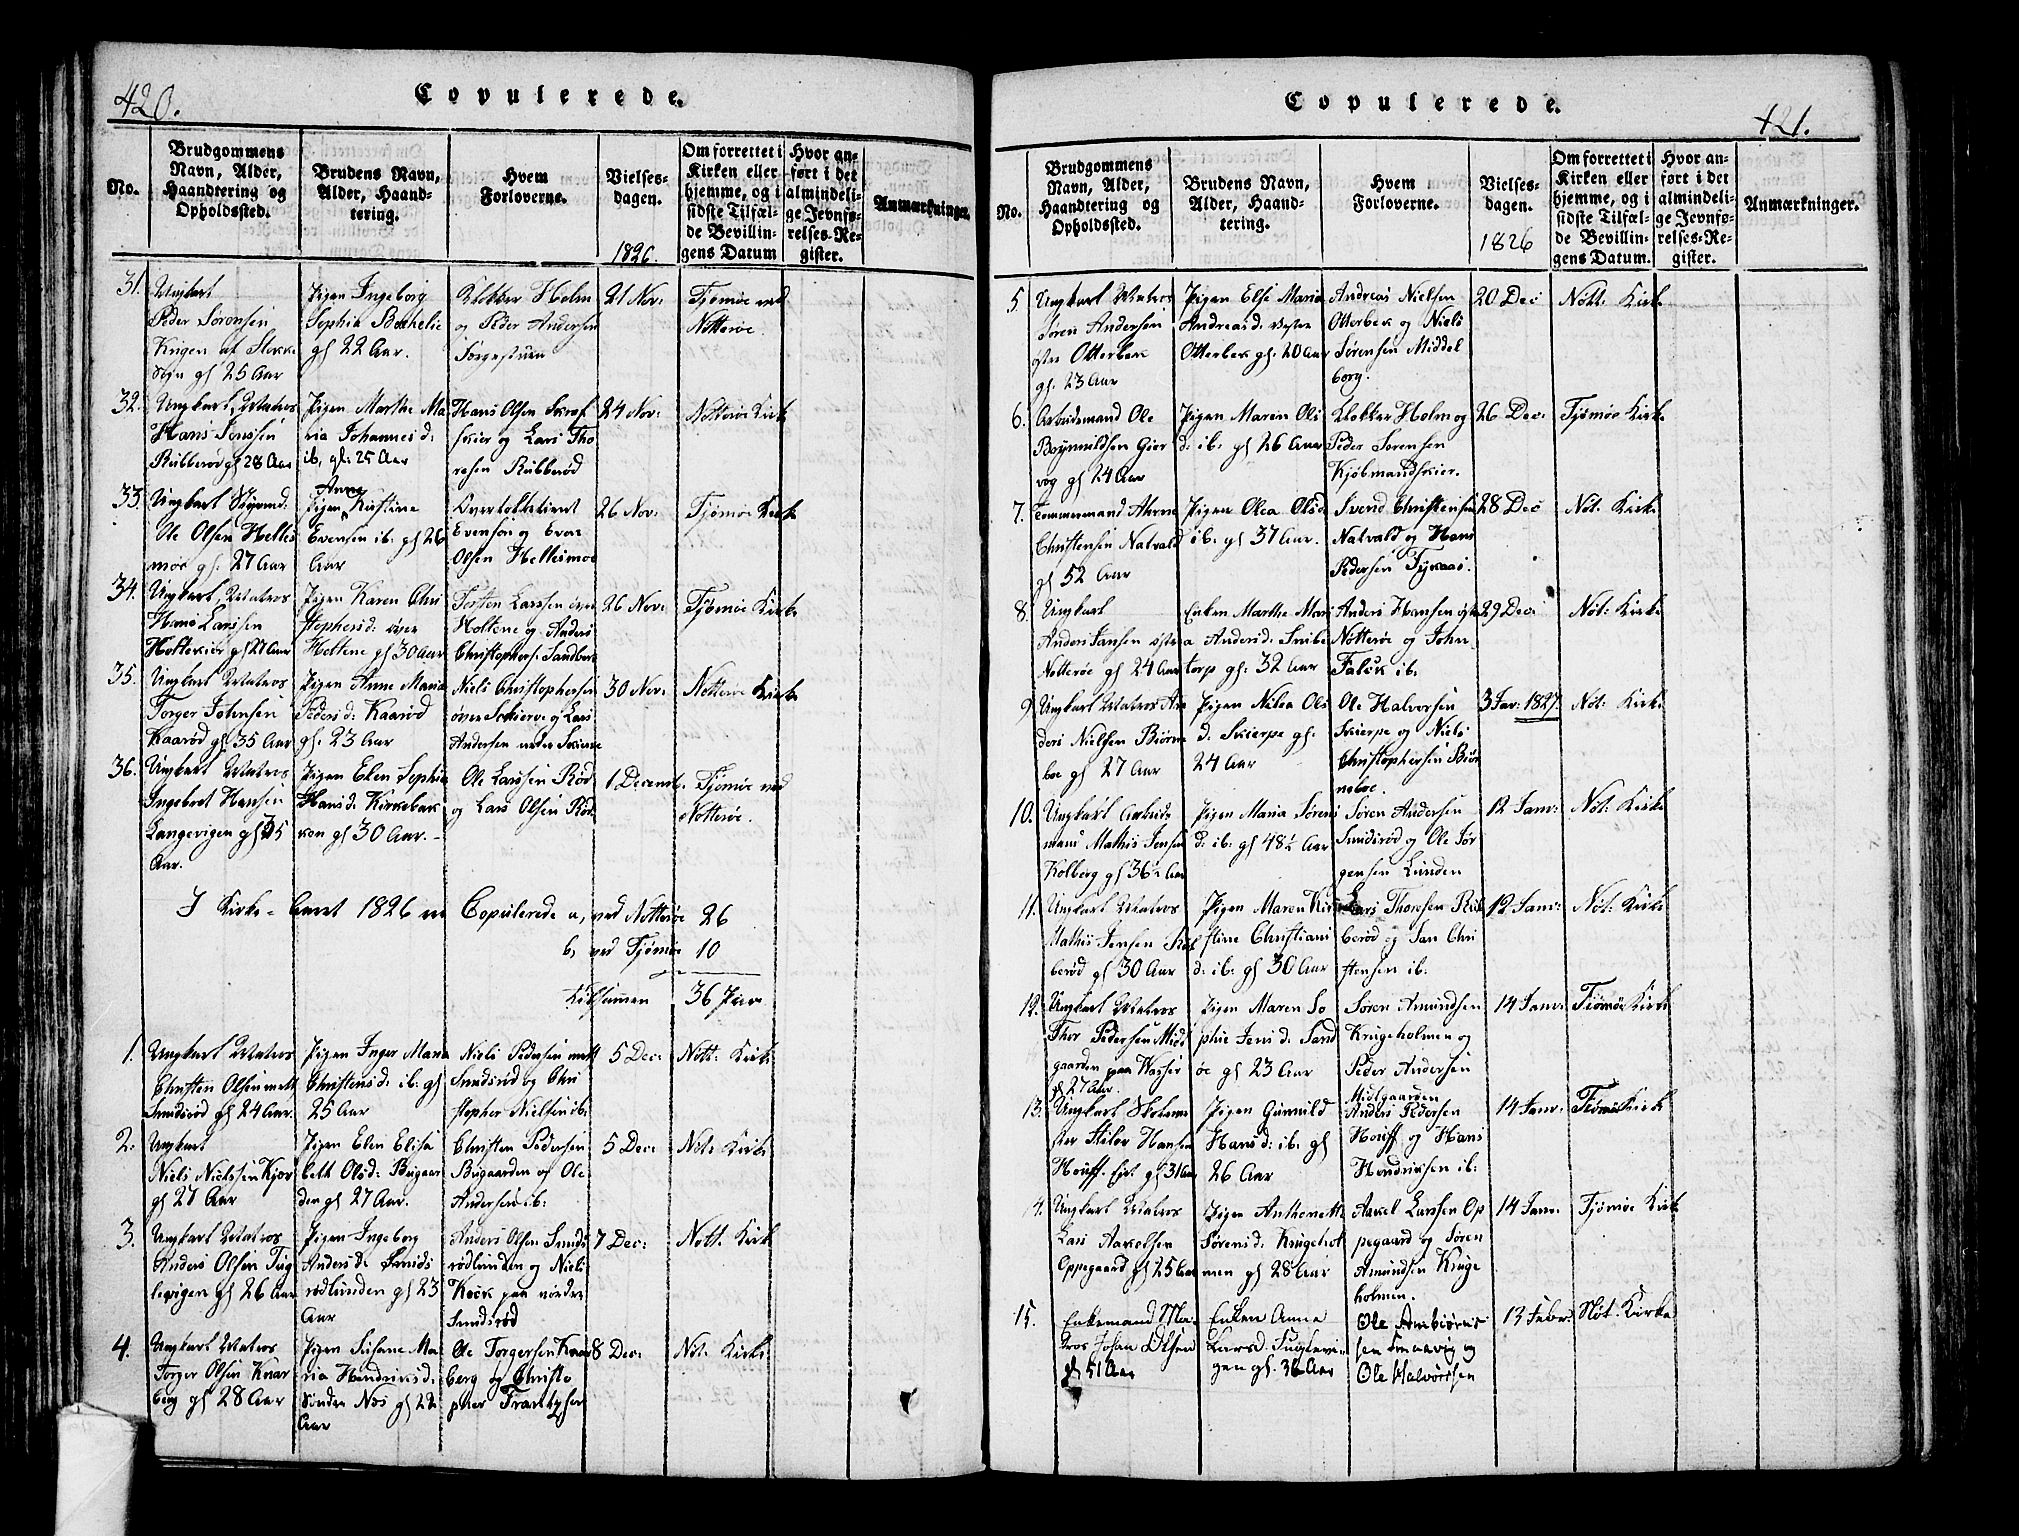 420.
Copulerede.
No.
Brudgommens
Navn, Alder,
Haandtering og
Opholdssted.
Brudens Navn,
Alder, Haand-
tering.
Hvem
Forloverne.
Vielses-
dagen.
1826
Om forrettet i
Kirken eller
hjemme, og i
sidste Tilfæl-
de Bevillin-
gens Datum
Hvor an-
ført i det
almindeli-
ge Jevnfø-
relses-Re-
gister.
Anmærkninger.
31.
Ungkarl
Peder Sørensen
Krigen af Stokke
Sogn gl 25 Aar
Pigen Ingeborg
Sophia
gl 22 Aar.
Klokker Holm
og Peder Andersen
21 Nov:
Tjømøe ved
Nøtterøe.
32.
Ungkarl, Matros
Hans
Rubberød gl 28 Aar
Pigen Marthe Ma
ria Johannesd:
ib. gl: 25 Aar
Hans Olsen
og Lars Tho
resen Rubberød
24 Nov:
Nøtterøe Kirke
33.
Ungkarl
Ole Olsen Helles
moe gl: 27 Aar
Anne
Pigen Kirstine
Evensen ib: gl 26
Aar
Evensen og Even
Olsen Hellesmoe
26 Nov:
Tjømøe Kirke
34.
Ungkarl, Matros
Hans Larssen
gl 27 Aar
Pigen Karen Chri
stophersd: øvre
Holtene gl 30 Aar
Torsten Larssen øvre
Holtene og Anders
Christophers: Sandberg
26 Nov:
Tjømøe Kirke
35.
Ungkarl Matros
Torger Johnsen
Kaarød gl 35 Aar
Pigen Anne Maria
Pedersd: Kaarød
gl: 23 Aar
Niels Christophersen
øvre Skierve og Lars
Andersen nedre Skierve
30 Nov:
Nøtterøe Kirke
36.
Ungkarl Matros
Ingebret Hansen
Langevigen gl 35
Aar.
Pigen Elen Sophia
Hansd: Kirkebak
ken gl 30 Aar.
Ole Larssen Rød
og Lars Olsen Rød
1 Decemb.
Tjømøe ved
Nøtterøe.
I Kirke-Aaret 1826 er Copulerede a, ved Nøtterøe 26
b, ved Tjømøe 10
Tilsammen 36 Par
1.
Ungkarl Matros
Christen Olsen
Sundsrød gl 24 Aar.
Pigen Inger Maria
Christensd: ib: gl
25 Aar
Niels Pedersen
Sundsrød og Chri
stopher Nielsen ib:
5 Dec:
Nøtt: Kirke
2.
Ungkarl
Niels Nielsen Kjær
gl 27 Aar
Pigen Elen Elisa
beth Olsd: Bugaar
den gl 27 Aar.
Christen Pedersen
Bugaarden og Ole
Andersen ib:
5 Dec:
Nøt: Kirke
3.
Ungkarl Matros
Anders Olsen Fug
levigen gl 26 Aar
Pigen Ingeborg
Andersd: Sunds
rødlunden gl 23
Aar
Anders Olsen Sunds
rødlunden og Niels
Kock paa nordre
Sundsrød
7 Dec:
Nøtt. Kirke
4.
Ungkarl Matros
Torger Olsen Knar
berg gl 28 Aar
Pigen Susane Ma
ria Hendriksd:
Søndre Næs gl 22
Aar
Ole Torgersen Knar
berg og Christo
pher Frantzsen
8 Dec:
Nøt: Kirke
421.
Copulerede.
No.
Brudgommens
Navn, Alder,
Haandtering og
Opholdssted.
Brudens Navn,
Alder, Haand-
tering.
Hvem
Forloverne.
Vielses-
dagen.
1826
Om forrettet i
Kirken eller
hjemme, og i
sidste Tilfæl-
de Bevillin-
gens Datum.
Hvor an-
ført i det
almindeli-
ge Jevnfø-
relses-Re-
gister.
Anmærkninger.
5.
Ungkarl Matros
Søren Andersen
Otterbek
gl: 23 Aar
Pigen Elsi Maria
Andreasd: Vestre
Otterbek gl: 20 Aar
Andreas Nielsen
Otterbek og Niels
Sørensen Middel
borg.
20 Dec
Nøtt: Kirke
6.
Arbeidsmand Ole
gl 24 Aar
Pigen Maren Ols
d: ib: gl 26 Aar
Klokker Holm og
Peder Sørensen
Kjøbmandskier.
26 Dec:
Tjømøe Kirke
7.
Tømmermand Ahrne
Christensen Natvald
gl 52 Aar
Pigen Olea Olsd
ib: gl 37 Aar.
Svend Christensen
Natvald og Hans
Pedersen
28 Dec
Nøt: Kirke
8.
Ungkarl
Anders Jansen østre
Nøtterøe gl 24 Aar
Enken Marthe Mari
a Andersd:
torp gl: 32 Aar
Anders Hansen østre
Nøtterøe og John
Falck ib:
29 Dec:
Nøt: Kirke
9
Ungkarl Matros An
ders Nielsen Biørne
boe gl 27 Aar
Pigen Nilea Ols
d: Skierpe gl:
24 Aar
Ole Halvorsen
Skierpe og Niels
Christophersen Biør
neboe.
3 Jan: 1827.
Nøt: Kirke
10.
Ungkarl Arbeids
mand Mathis Jensen
Kolberg gl 36½ Aar
Pigen Maria Sørens
d: ib: gl 48½ Aar
Søren Andersen
Sundsrød og Ole Jør
gensen Lunden
12 Janv:
Nøt: Kirke
11.
Ungkarl Matros
Mathis Jensen Rub
berød gl 30 Aar
Pigen Maren Kir
stine Christians
d: ib: gl 30 Aar
Lars Thoresen Rub
berød og Jan Chri
stensen ib:
12 Janv:
Nøt: Kirke
12.
Ungkarl Matros
Thor Pedersen Midt
gaarden paa Wasser
gl 27 Aar.
Pigen Maren So
phie Jensd: Sand
øe gl 23 Aar
Søren Amundsen
Krugeholmen og
Peder Andersen
Midtgaarden
14 Janv:
Tiømøe Kirke
13.
Ungkarl
Hansen
gl 31 Aar
Pigen Gunnild
Hansd: ib: gl
26 Aar
Anders Pedersen
Houff og Hans
Hendriksen ib:
14 Janv:
Tiømøe Kirke
4.
Ungkarl Matros
Lars Axelsen
Oppegaard gl 25 Aar
Pigen Anthonette
Sørensd: Krugehol
men gl 28 Aar
Axel Larssen Op
pegaard og Søren
Amundsen Kruge
holmen.
14 Janv:
Tjømøe Kirke
15.
Enkemand Ma-
tros Johan Olsen
gl 51 Aar
Enken Anne
Larsd: Fuglevi-
gen gl: 36 Aar
Ole Ambiørns
sen og
Ole Halvorssen
13 Febr:
Nøt: Kirke